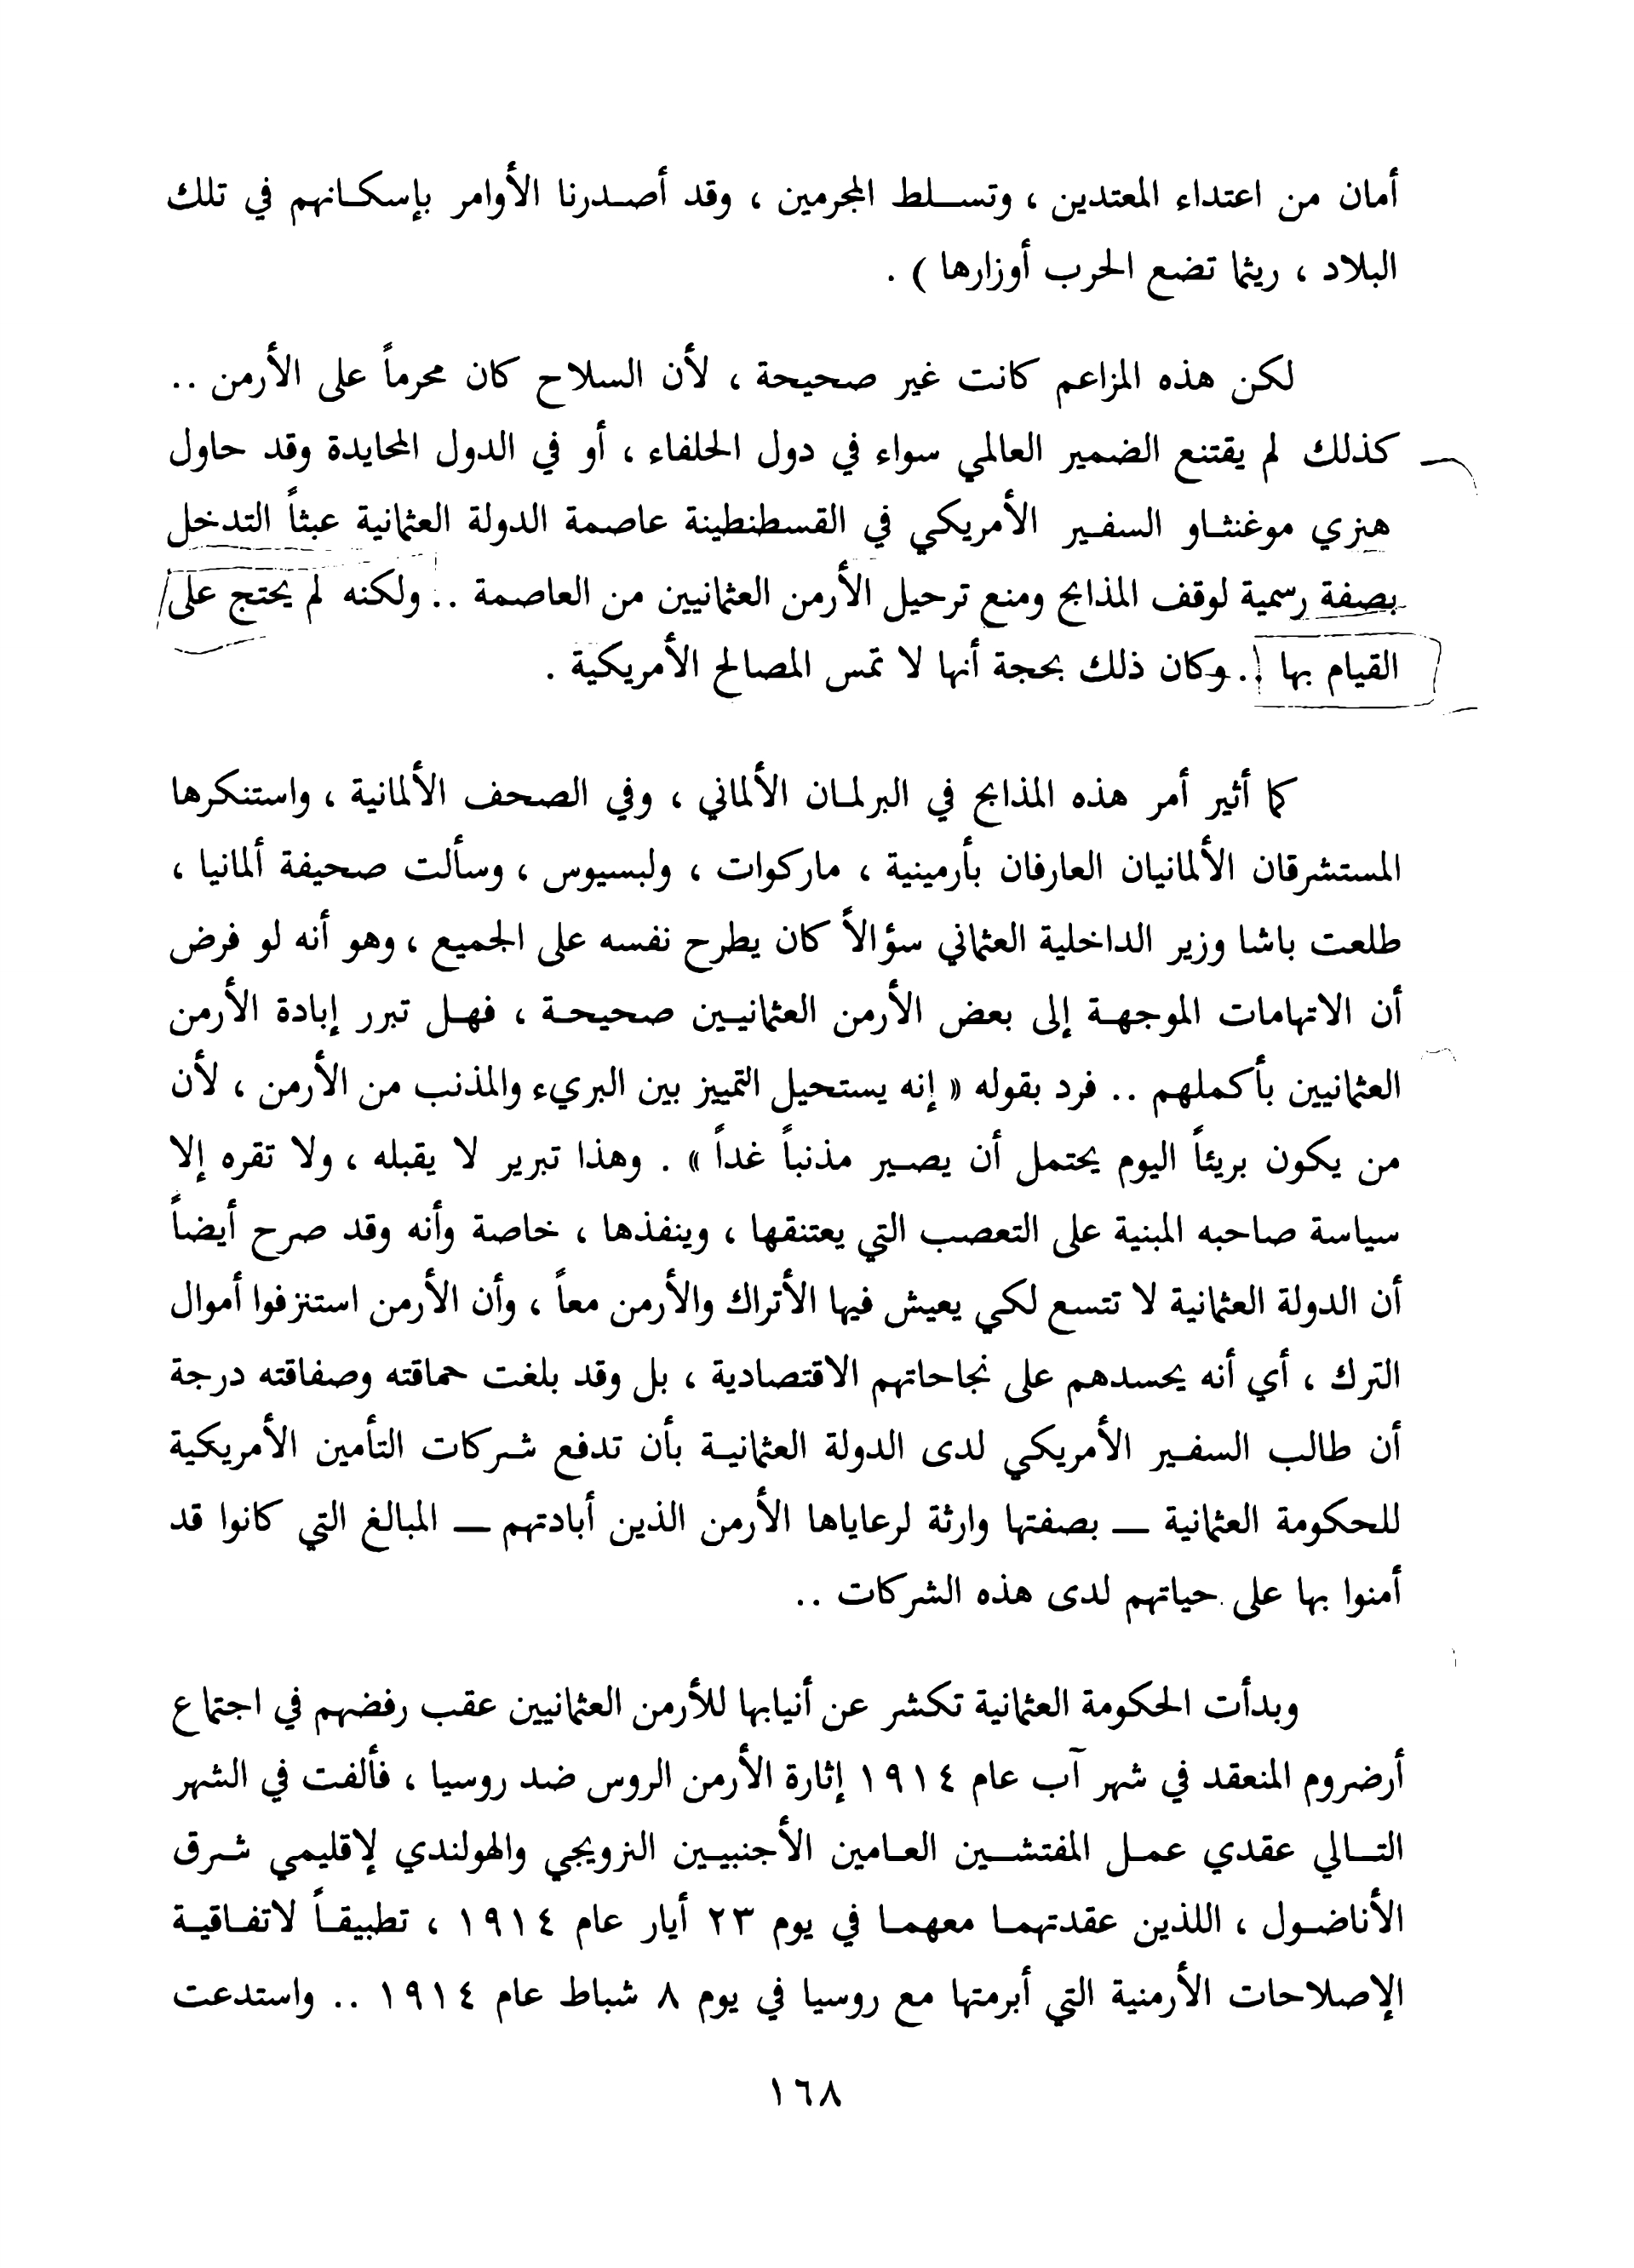 أمان من اعتداء المعتدين ، وتسلط المجرمين ، وقد أصدرنا الأوامر بإسكانهم في تلك
البلاد ، ريثما تضع الحرب أوزارها ) .
لكن هذه المزاعم كانت غير صحيحة ، لأن السلاح كان محرماً على الأرمن ..
كذلك لم يقتنع الضمير العالمي سواء في دول الحلفاء ، أو في الدول المحايدة وقد حاول
هنري موغنثاو السفير الأمريكي في القسطنطينة عاصمة الدولة العثمانية عبثاً التدخل
بصفة رسمية لوقف المذابح ومنع ترحيل الأرمن العثمانيين من العاصمة .. ولكنه لم يحتج على
القيام بها !.. وكان ذلك بحجة أنها لا تمس المصالح الأمريكية .
كما أثير أمر هذه المذابح في البرلمان الألماني ، وفي الصحف الألمانية ، واستنكرها
المستشرقان الألمانيان العارفان بأرمينية ، ماركوات ، ولبسيوس ، وسألت صحيفة ألمانيا ،
طلعت باشا وزير الداخلية العثماني سؤالاً كان يطرح نفسه على الجميع ، وهو أنه لو فرض
أن الاتهامات الموجهة إلى بعض الأرمن العثمانيين صحيحة ، فهل تبرر إبادة الأرمن
العثمانيين بأكملهم .. فرد بقوله « إنه يستحيل التمييز بين البريء والمذنب من الأرمن ، لأن
من يكون بريئاً اليوم يحتمل أن يصير مذنباً غداً » . وهذا تبرير لا يقبله ، ولا تقره إلا
سياسة صاحبه المبنية على التعصب التي يعتنقها ، وينفذها ، خاصة وأنه وقد صرح أيضاً
أن الدولة العثمانية لا تتسع لكي يعيش فيها الأتراك والأرمن معاً ، وأن الأرمن استنزفوا أموال
الترك ، أي أنه يحسدهم على نجاحاتهم الاقتصادية ، بل وقد بلغت حماقته وصفاقته درجة
أن طالب السفير الأمريكي لدى الدولة العثمانية بأن تدفع شركات التأمين الأمريكية
للحكومة العثمانية ــ بصفتها وارثة لرعاياها الأرمن الذين أبادتهم ــ المبالغ التي كانوا قد
أمنوا بها على حياتهم لدى هذه الشركات ..
وبدأت الحكومة العثمانية تكشر عن أنيابها للأرمن العثمانيين عقب رفضهم في اجتماع
أرضروم المنعقد في شهر آب عام ١٩١٤ إثارة الأرمن الروس ضد روسيا ، فألفت في الشهر
التالي عقدي عمل المفتشين العامين الأجنبيين النرويجي والهولندي لإقليمي شرق
الأناضول ، اللذين عقدتهما معهما في يوم ٢٣ أيار عام ١٩١٤ ، تطبيقاً لاتفاقية
الإصلاحات الأرمنية التي أبرمتها مع روسيا في يوم ٨ شباط عام ١٩١٤ .. واستدعت
١٦٨